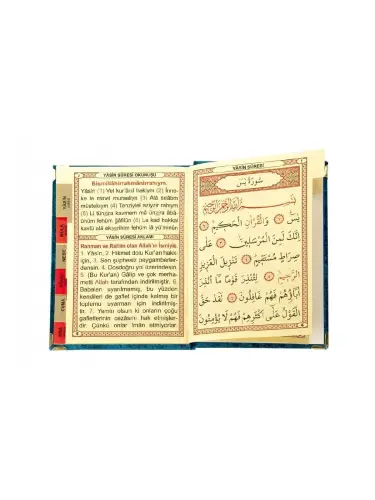 YÂSİN SÛRESİ OKUNUŞU
Bismillâhirrahmânirrahıym.
Yâsîn (1) Vel Kur'ânil hakiym (2) İnne-
ke le minel murseliyn (3) Alâ sırâtim
müstekıym (4) Tenziylel azizir rahiym
(5) Li tünzira kavmem mâ ünzira âbâ-
ühüm fehüm ğâfilûn (6) Le kad hakkal
kavlü alâ ekserihim fehüm lâ yü'minûn
YÂSİN SÛRESİ ANLAMI
Rahman ve Rahim olan Allah'ın ismiyle.
1. Yâsîn. 2. Hikmet dolu Kur'an hakkı
için, 3. Sen şüphesiz peygamberler-
densin. 4. Dosdoğru yol üzerindesin.
5. (Bu Kur'an) Gâlip ve çok merha-
metli Allah tarafından indirilmiştir. 6.
Babaları uyarılmamış, bu yüzden
kendileri de gaflet içinde kalmış bir
toplumu uyarman için indirilmiştir.
7. Yemin olsun ki onların çoğu
gafletlerinin cezâsını hak etmişler-
dir. Çünkü onlar îman etmiyorlar.
YÂSİN SÛRESİ
سُورَةُ يٰسٓ
بِسْمِ اللّٰهِ الرَّحْمٰنِ الرَّحِيمِ
يٰسٓ وَالْقُرْاٰنِ الْحَكِيمِ
اِنَّكَ لَمِنَ الْمُرْسَلِينَ عَلٰى
صِرَاطٍ مُسْتَقِيمٍ تَنْزِيلَ الْعَزِيزِ
الرَّحِيمِ لِتُنْذِرَ قَوْمًا مَٓا اُنْذِرَ
اٰبَٓاؤُ۬هُمْ فَهُمْ غَافِلُونَ لَقَدْ حَقَّ
الْقَوْلُ عَلٰٓى اَكْثَرِهِمْ فَهُمْ لَا يُؤْمِنُونَ